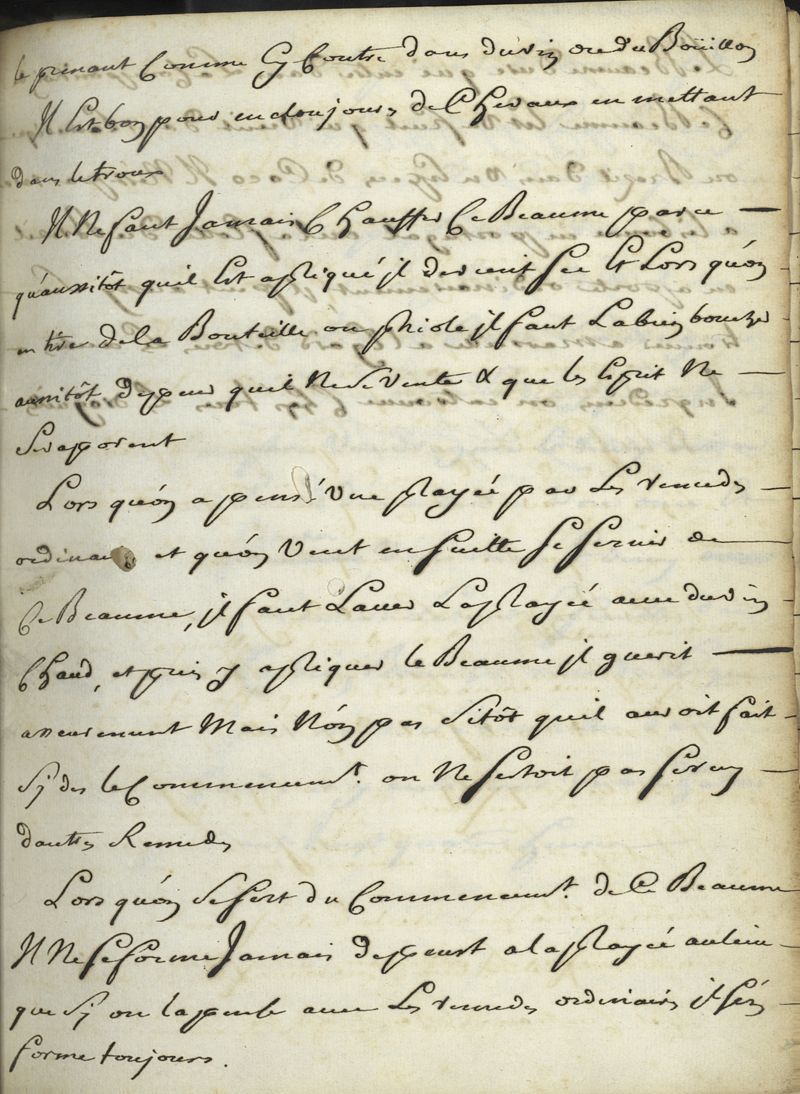 le prenant Comme Cy Contre dans du vin ou du Boüillon
Il Est bon pour encloujeures de Chevaux en mettant
dans le troux
Il Ne faut Jamais Chauffer Ce Beaume parce
qu'aussitôt quil Est apliqué jl devient sec Et Lors qu'on
en tire de la Bouteille ou phiole jl faut La bien boucher
aussitôt de peur quil Ne Sevente & que les Esprit Ne
Sevaporent
Lors qu'on a pensé Une playée par Les remedes
ordinaires et qu'on Veut en Suitte se servir de
Ce Beaume, jl faut Laver La playée avec du vin
Chaud, et puis y apliquer le Beaume jl guerit
asseurement Mais Nón pas Sitôt quil auroit fait
Sy des le Commencemt. on Ne sestoit pas servy
dautres Remedes
Lors qu'on se sert du Commencemt. de Ce Beaume
Il Ne se forme Jamais de pus a la playée au lieu
que Sy on la pense avec Les remedes ordinaires jl sén
forme toujours.